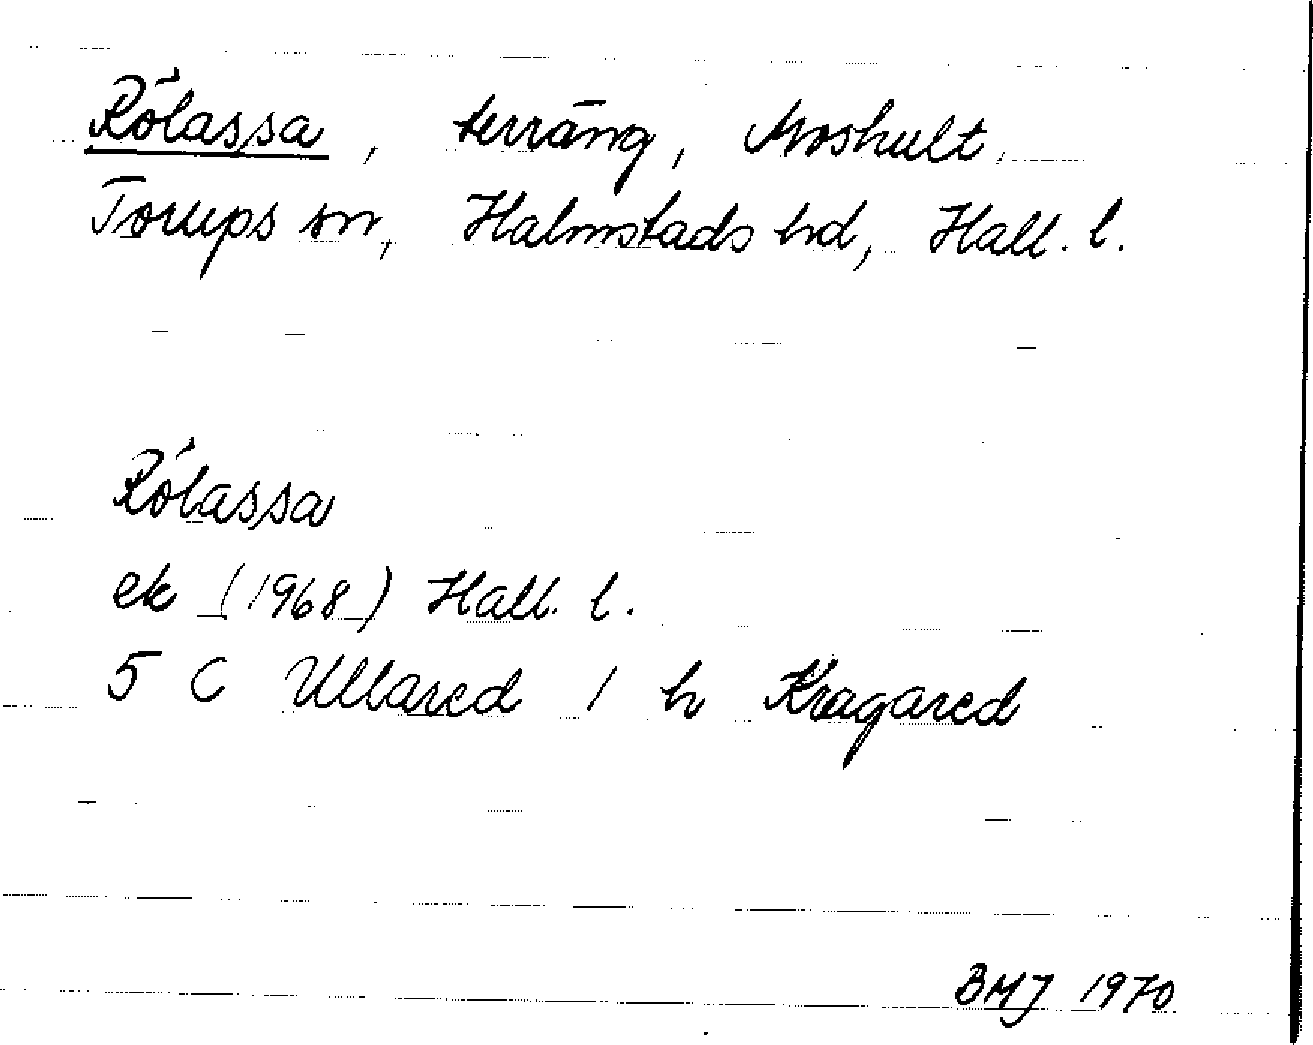 Rölassa, terräng, Moshult,
Torups sn, Halmstads hd, Hall. l.
Rölassa
ek (1968) Hall. l.
5 C Ullared 1 h Kragared
BMJ 1970